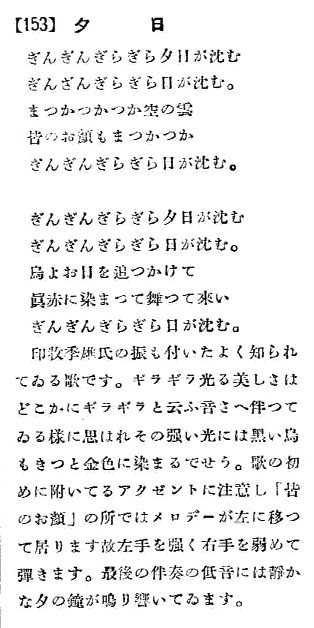 【153】 夕日
ぎんぎんぎらぎら夕日が沈む
ぎんぎんぎらぎら日が沈む。
まつかつかつか空の雲
皆のお顔もまつかつか
ぎんぎんぎらぎら日が沈む。
ぎんぎんぎらぎら夕日が沈む
ぎんぎんぎらぎら日が沈む。
烏よお日を追つかけて
眞赤に染まつて舞つて來い
ぎんぎんぎらぎら日が沈む。
印牧季雄氏の振も付いたよく知られ
てゐる歌です。ギラギラ光る美しさは
どこかにギラギラと云ふ音さへ伴つて
ゐる様に思はれその强い光には黑い烏
もきつと金色に染まるでせう。歌の初
めに附いてるアクゼントに注意し「皆
のお顔」の所ではメロデーが左に移つ
て居ります故左手を强く右手を弱めて
彈きます。最後の伴奏の低音には靜か
な夕の鐘が鳴り響いてゐます。